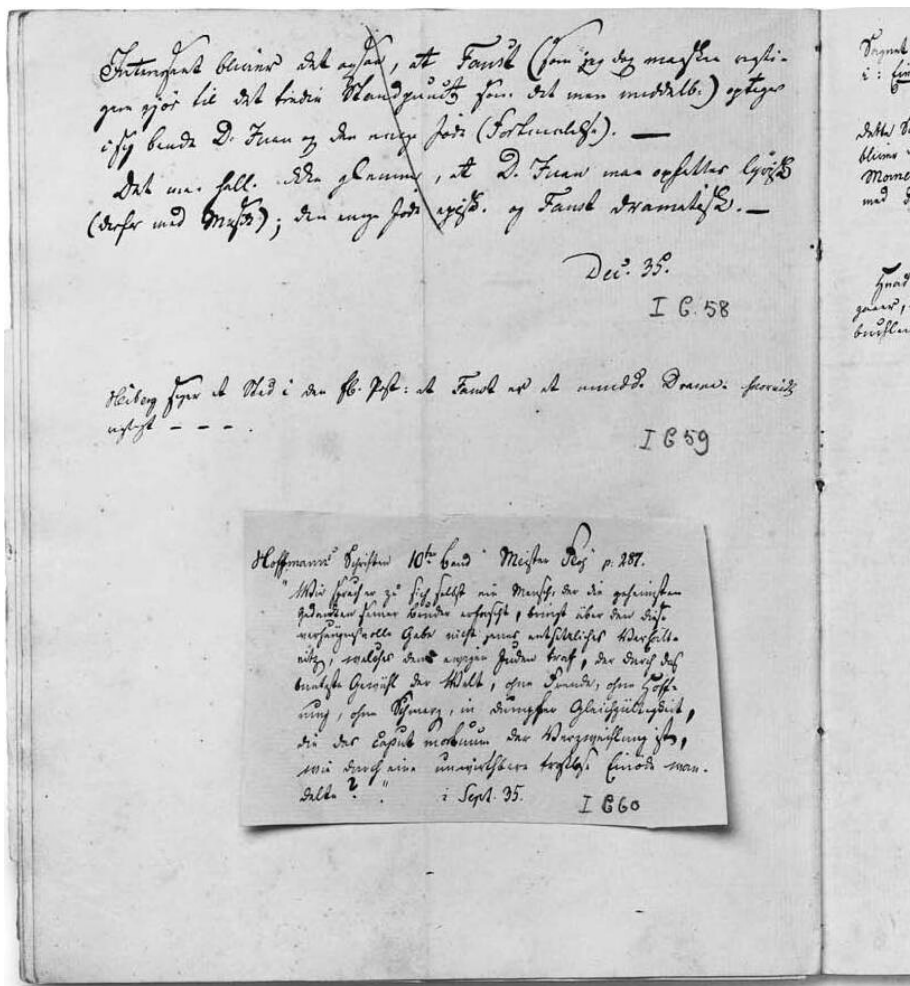 Interessant bliver det ogsaa, at Faust (som jeg dog maaskee rigti-
gere gjør til det tredie Standpunct som det mere middelb:) optager
i sig baade D. Juan og den evige Jøde (Fortvivlelse). —
Det maa hell. ikke glemmes, at D. Juan maa opfattes lyrisk
(derfor med Musik); den evige Jøde episk. og Faust dramatisk. —
Dec. 35.
I C. 58
Heiberg siger et Sted i den fl. Post: at Faust er et umidd. Drama. hvorvidt
rigtigt – – – .
I C 59
Hoffmanns Schriften 10ter Band "Meister Floh" p. 287.
"Wie sprach er zu sich selbst ein Mensch, der die geheimsten
Gedanken seiner Brüder erforscht, bringt über den diese
verhängnißvolle Gabe nicht jenes entsetzliches Verhält-
nitz, welches den ewigen Juden traf, der durch das
bunteste Gewühl der Welt, ohne Freude, ohne Hoff-
nung, ohne Schmerz, in dumpfer Gleichgültigkeit,
die das caput mortuum der Verzweiflung ist,
wie durch eine unwirthbare trostlose Einöde wan-
delte? "
i Sept. 35.
I C 60
Sagnet
i:
dette
bliver
med
Hvad
gaaer,